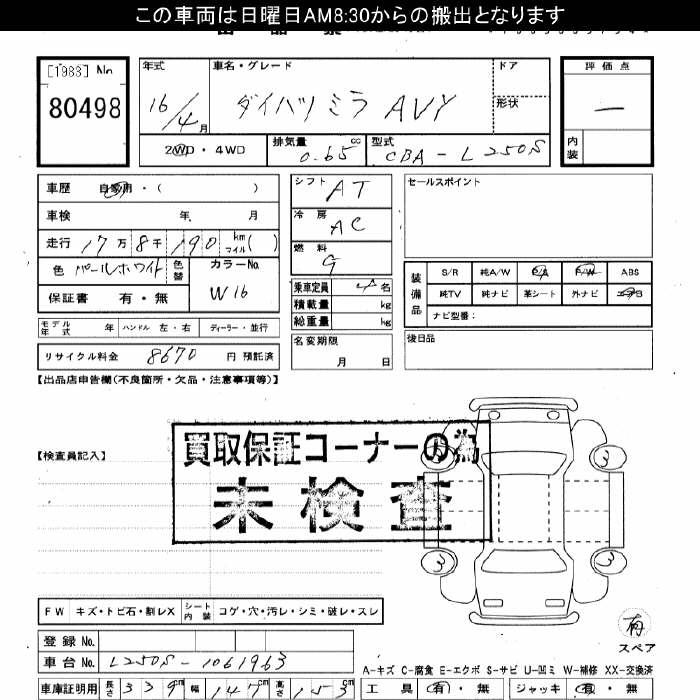 この車両は日曜日AM8:30からの搬出となります
[1983] No
80498
年式 車名・グレード ドア 評価点
16/4月 ダイハツ ミラ AVY 形状 —
内装
2WD・4WD 排気量 0.65 cc 型式 CBA-L250S
車歴 自家用・( )
車検 年 月
走行 17万8千190 km マイル( )
色 パールホワイト 色替 カラーNo. W16
保証書 有・無
モデル年式 年 ハンドル 左・右 ディーラー・並行
リサイクル料金 8670 円 預託済
シフト AT
冷房 AC
燃料 G
乗車定員 4名
積載量 kg
総重量 kg
名変期限
月 日
セールスポイント
装備品 S/R 純A/W P/S P/W ABS
純TV 純ナビ 革シート 外ナビ エアB
ナビ型番:
後日品
【出品店申告欄(不良箇所・欠品・注意事項等)】
【検査員記入】
買取保証コーナーの為
未検査
3 3
3 3
FW キズ・トビ石・割レX シート内装 コゲ・穴・汚レ・シミ・破レ・スレ
有
スペア
登録 No.
車台 No. L250S-1061963
車庫証明用 長さ 339cm 幅 147cm 高さ 153cm
A-キズ C-腐食 E-エクボ S-サビ U-凹ミ W-補修 XX-交換済
工具 有・無 ジャッキ 有・無